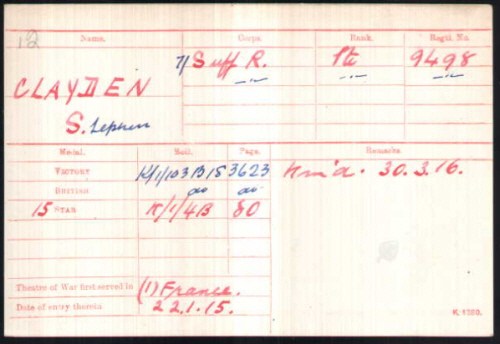 12
Name. Corps. Rank. Regtl. No.
7/Suff R. Pte 9498
CLAYDEN -"- -"- -"-
Stephen
Medal. Roll. Page. Remarks.
VICTORY K/1/103B15 3623 30.3.16.
BRITISH do do
15 STAR K/1/4B 80
Theatre of War first served in (1) France.
Date of entry therein 22.1.15.
K. 1380.